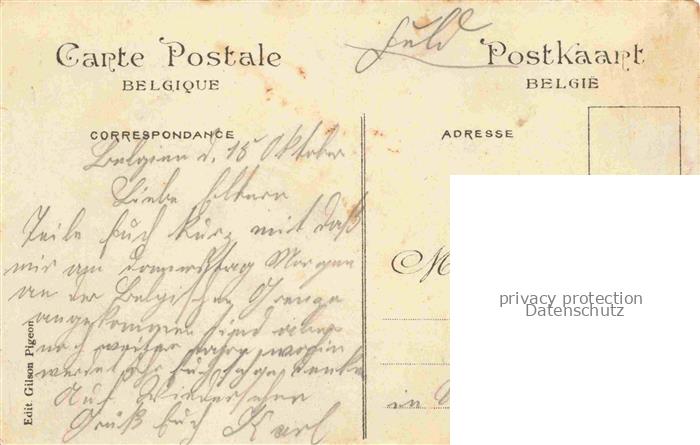 Carte Postale
BELGIQUE
Feld Postkaart
BELGIË
CORRESPONDANCE
ADRESSE
Belgien d. 15 Oktober
Liebe Eltern
Teile Euch kurz mit daß
wir am Donnerstag Morgen
an der Belgischen Grenze
angekommen sind
noch weiter
werdet Ihr Euch
Auf Wiedersehen
Gruß Euch Karl
Edit. Gilson Pigeon
M
in
privacy protection
Datenschutz